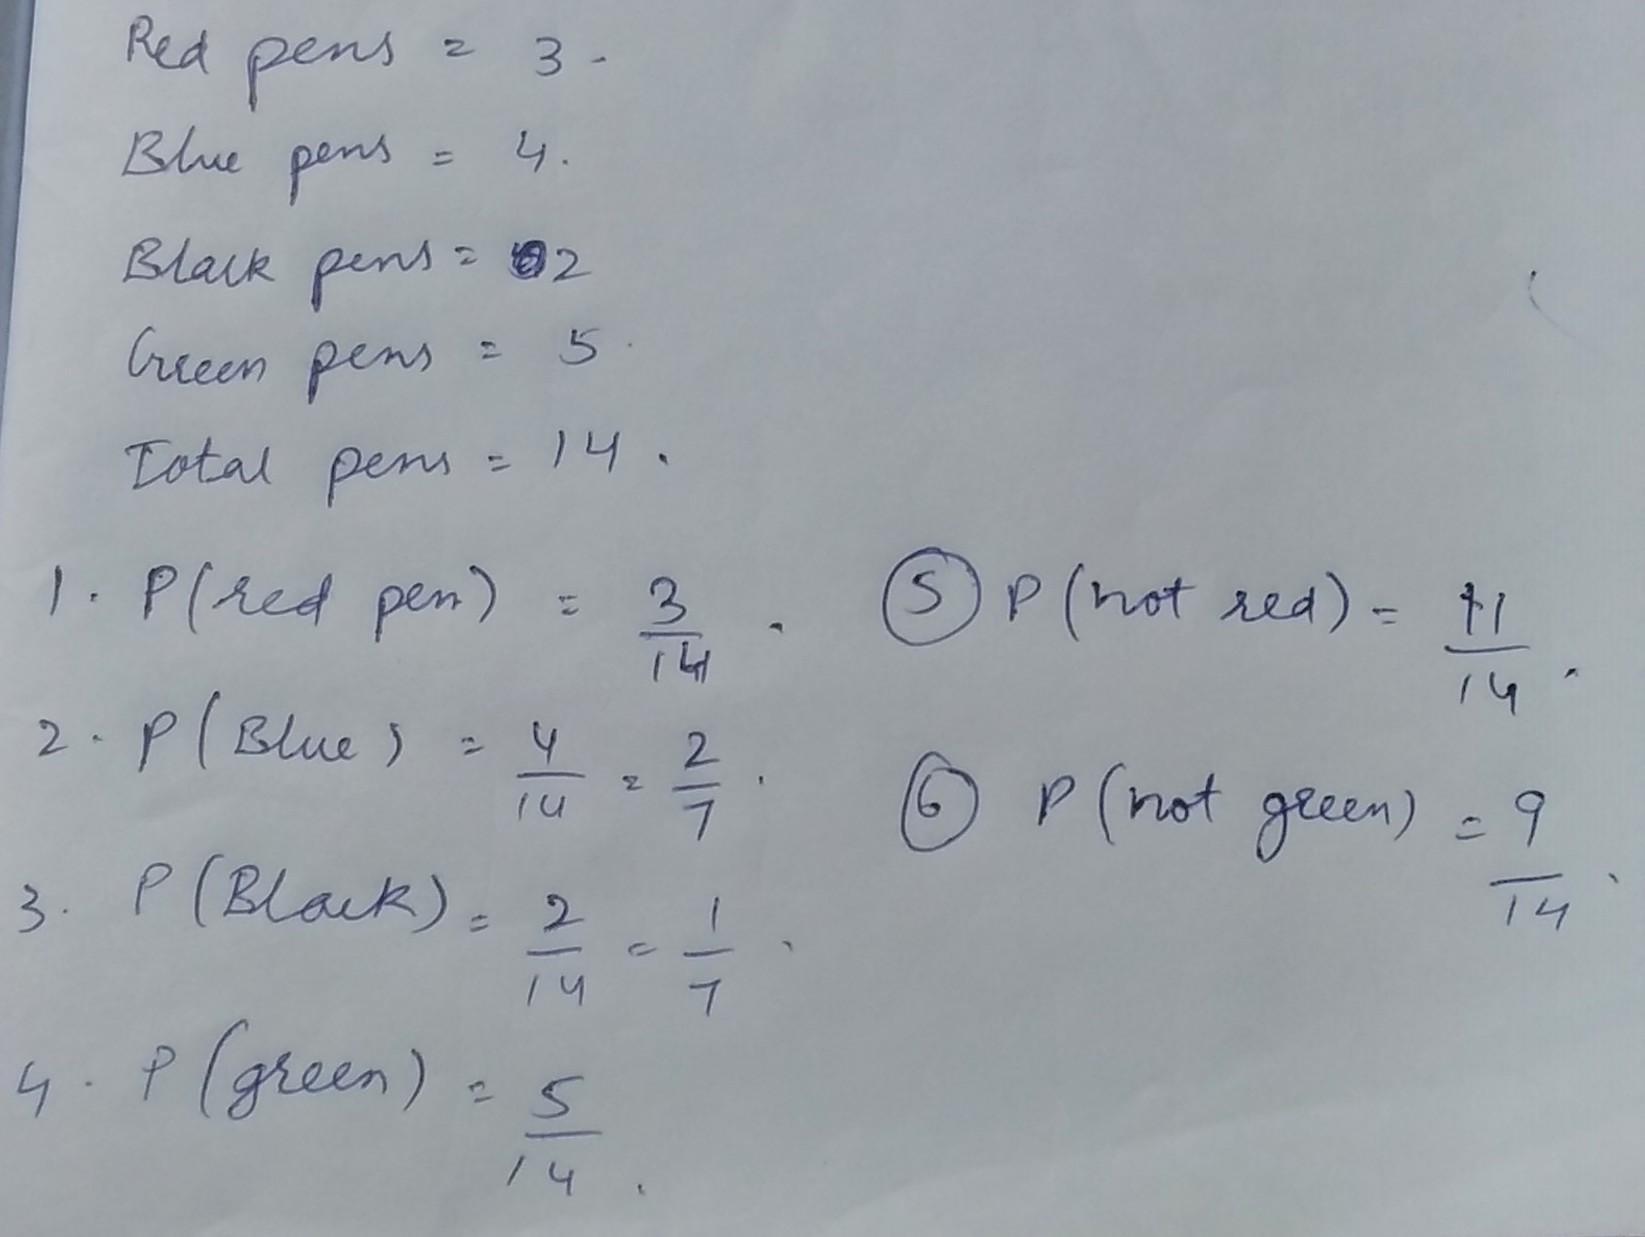 Red pens = 3.
Blue pens = 4.
Black pens = 2
Green pens = 5.
Total pens = 14.
1. P(red pen) = 3/14.
2. P(Blue) = 4/14 = 2/7.
3. P(Black) = 2/14 = 1/7.
4. P(green) = 5/14.
5 P(not red) = 11/14.
6 P(not green) = 9/14.